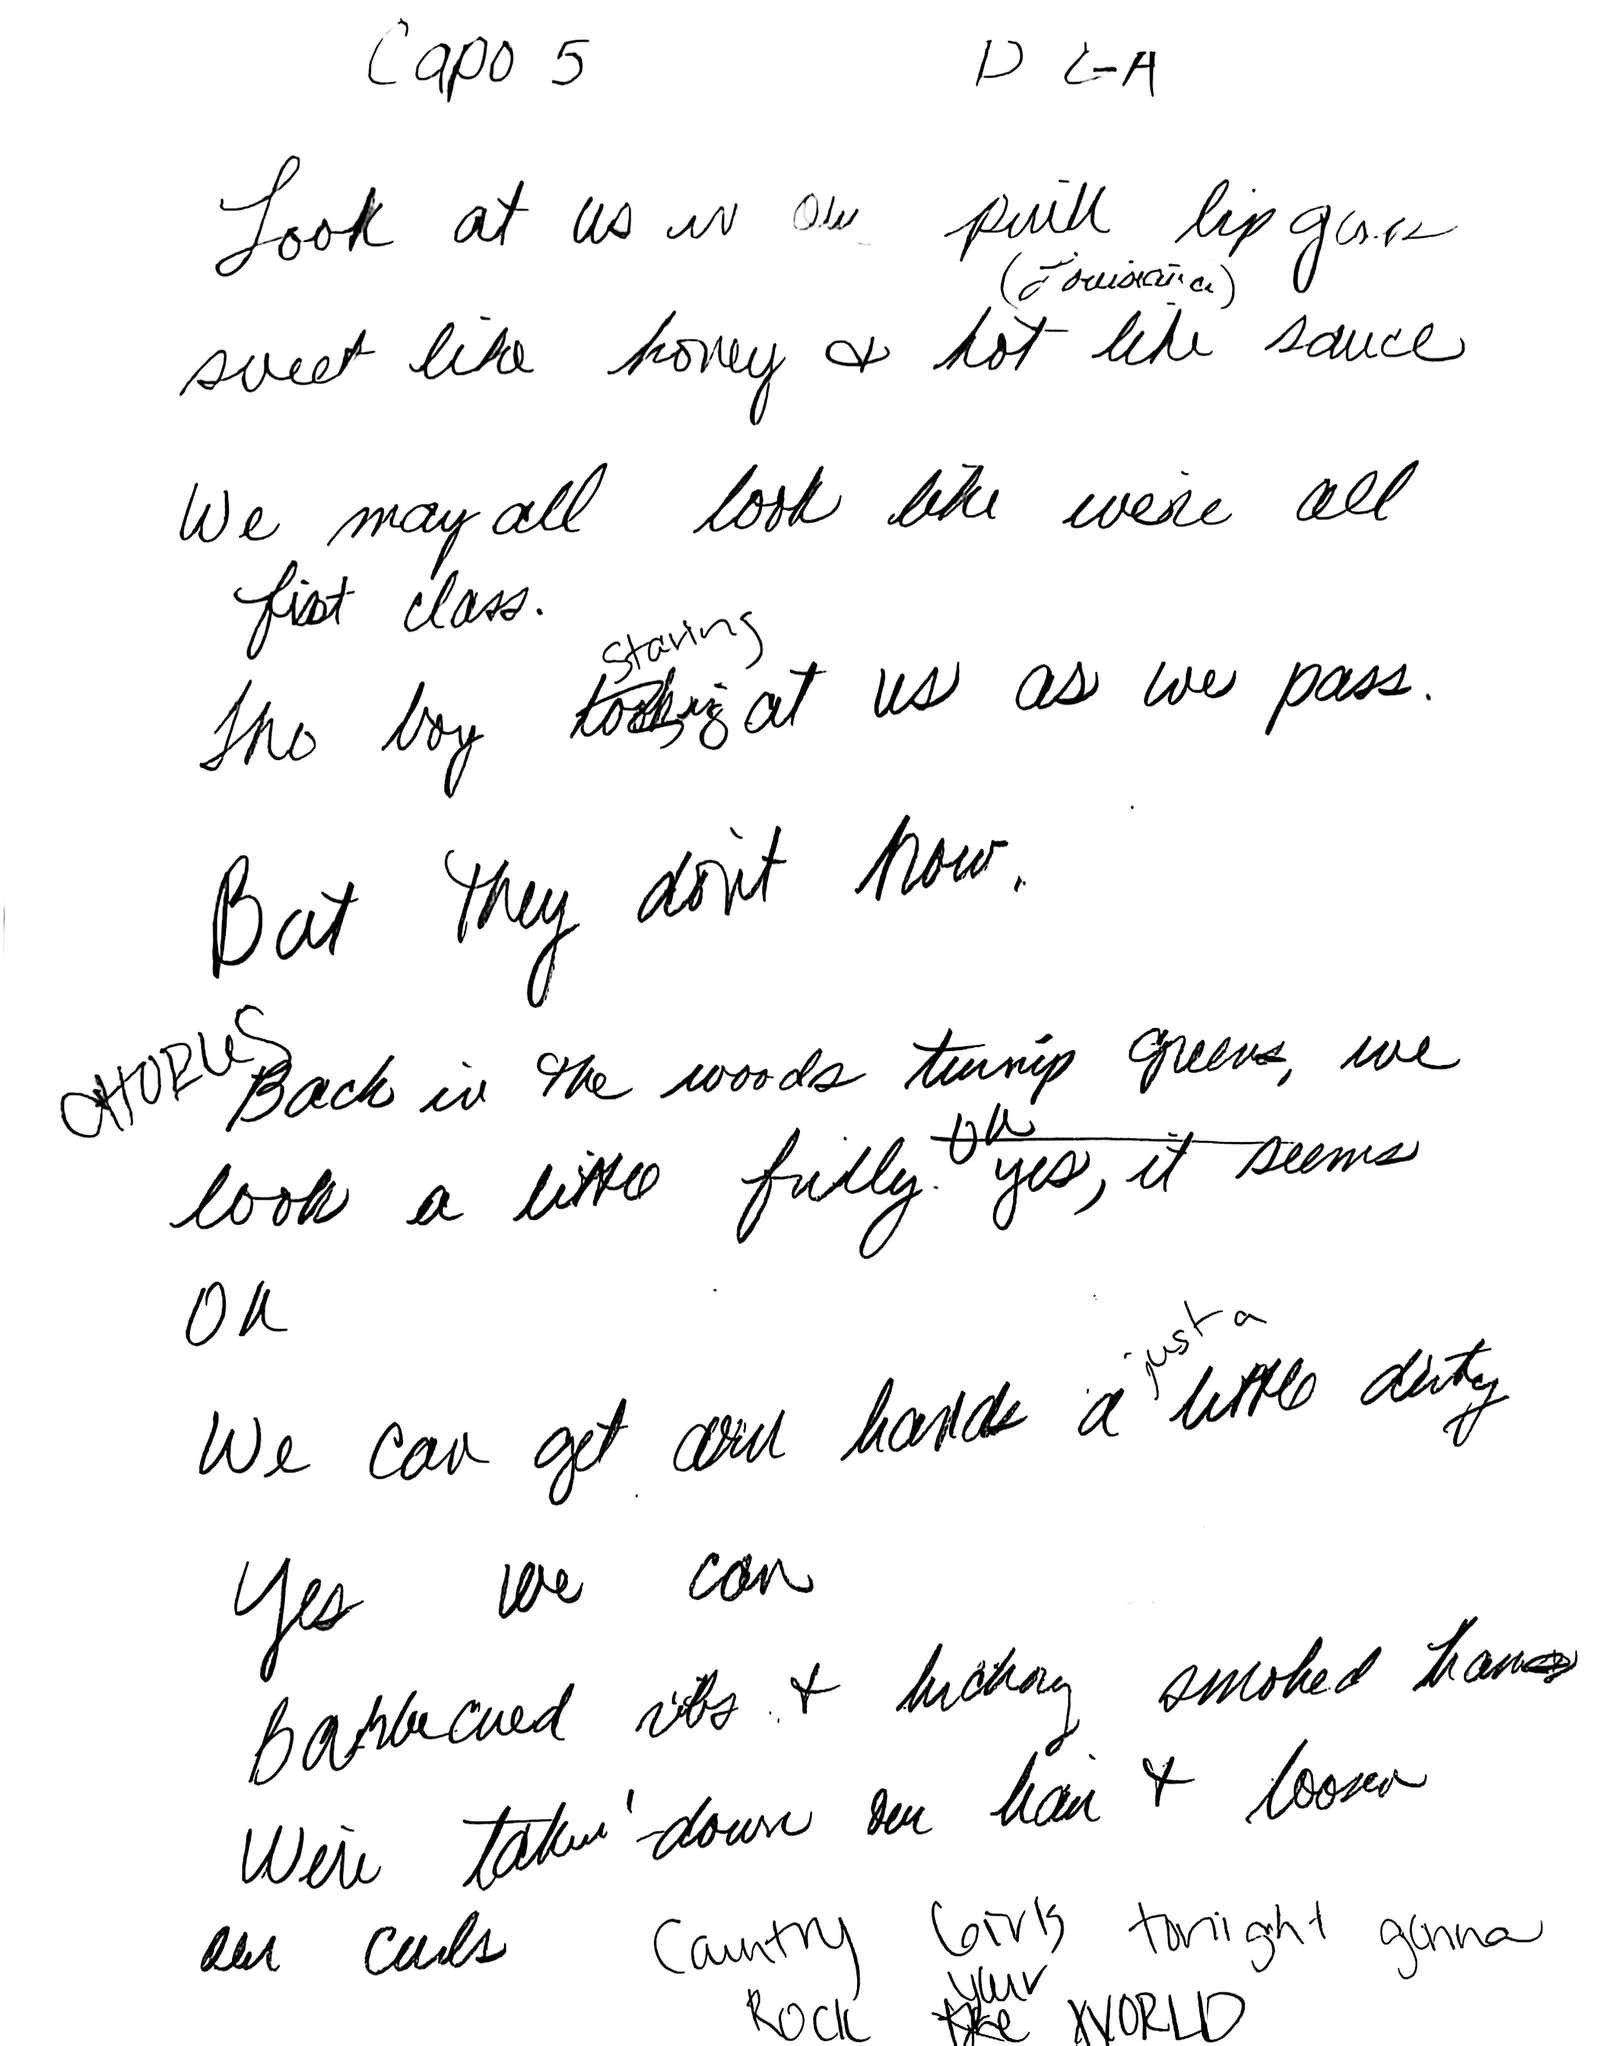 Capo 5 D G A
Look at us in our pink lip gloss
(Louisiana)
sweet like honey & hot like sauce
We may all look like we're all
first class.
staring
The boy looking at us as we pass.
But they don't know.
CHORUS
Back in the woods turnip greens, we
look a little frilly. Oh yes, it seems
Oh
just a
We can get our hands a little dirty
Yes we can
Barbecued ribs & hickory smoked ham
We're takin' down our hair & loosen
our curls Country Girls tonight gonna
your
Rock the WORLD